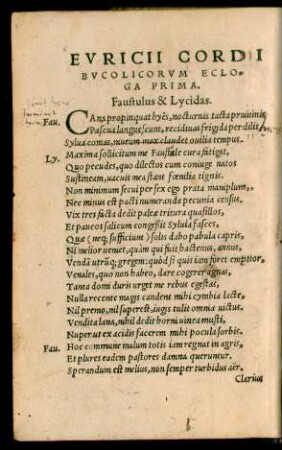 EVRICII CORDI
BVCOLICORVM ECLO-
GA PRIMA.
Faustulus & Lycidas.
Fau. CAna propinquat hyēs, nocturnis tacta pruinis
Pascua languescunt, recidiuas frigida perdidit
Sylua comas, uentum mox claudet ouilia tempus.
Ly. Maxima sollicitum me Faustule cura fatigat,
Quo pecudes, quo dilectos cum coniuge natos
Sustineam, uacuis mea stant fœnilia tignis.
Non minimum secui per sex ego prata maniplum,
Nec minus est pacti numeranda pecunia census.
Vix tres facta dedit paleæ tritura quasillos,
Et paucos salicum congessit Syluia fasces,
Quæ (neque sufficiunt) solis dabo pabula capris,
Ni melior ueniet, quàm qui fuit hactenus, annus,
Vendā utrunque gregem: quòd si quis iam foret emptor,
Venales, quo non habeo, dare cogerer agnas,
Tanta domi duris urget me rebus egestas,
Nulla recente magis candent mihi cymbia lacte,
Nil premo, nil superest, iugis tulit omnia uictus.
Vendita lana, nihil dedit horni uinea musti,
Nuper ut ex acidis facerem mihi pocula sorbis.
Fau. Hoc commune malum totis iam regnat in agris,
Et plures eadem pastores damna queruntur.
Sperandum est melius, non semper turbidus aër,
Clarius